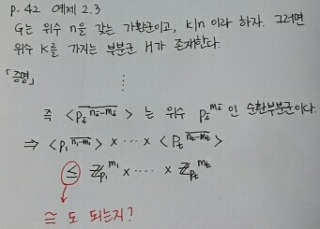 P. 42 예제 2.3
G는 위수 n을 갖는 가환군이고, k|n 이라 하자. 그러면
위수 K를 가지는 부분군 H가 존재한다.
「증명」
⋮
즉 < p_i^{n_i-m_i} > 는 위수 p_i^{m_i} 인 순환부분군이다.
⇒ < p_1^{n_1-m_1} > × ⋯ × < p_t^{n_t-m_t} >
≤ ℤ_{p_1}^{m_1} × ⋯ × ℤ_{p_t}^{m_t}
≅ 도 되는지?